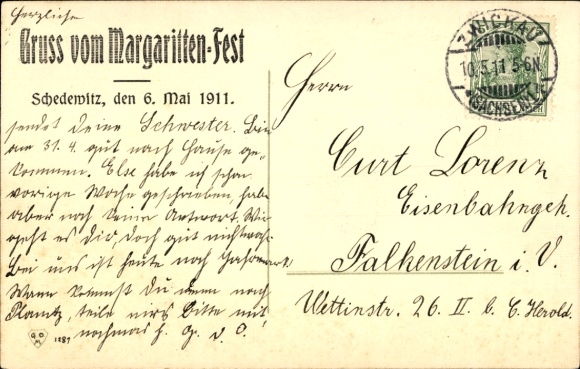 Herzliche
Gruss vom Margaritten-Fest
Schedewitz, den 6. Mai 1911.
sendet deine Schwester. Bin
am 31. 4. gut nach Hause ge-
kommen. Else habe ich schon
vorige Woche geschrieben, habe
aber noch keine Antwort. Wie
geht es dir, doch gut nichtwahr.
Bei uns ist heute noch
Wann kommst Du denn nach
Planitz, teile mirs bitte mit
nochmas h. G. d. O.!
1287
ZWICKAU
10.5.11 5-6N
(SACHSEN)
Herrn
Curt Lorenz
Eisenbahngeh.
Falkenstein i. V.
Wettinstr. 26. II b. C. Herold.